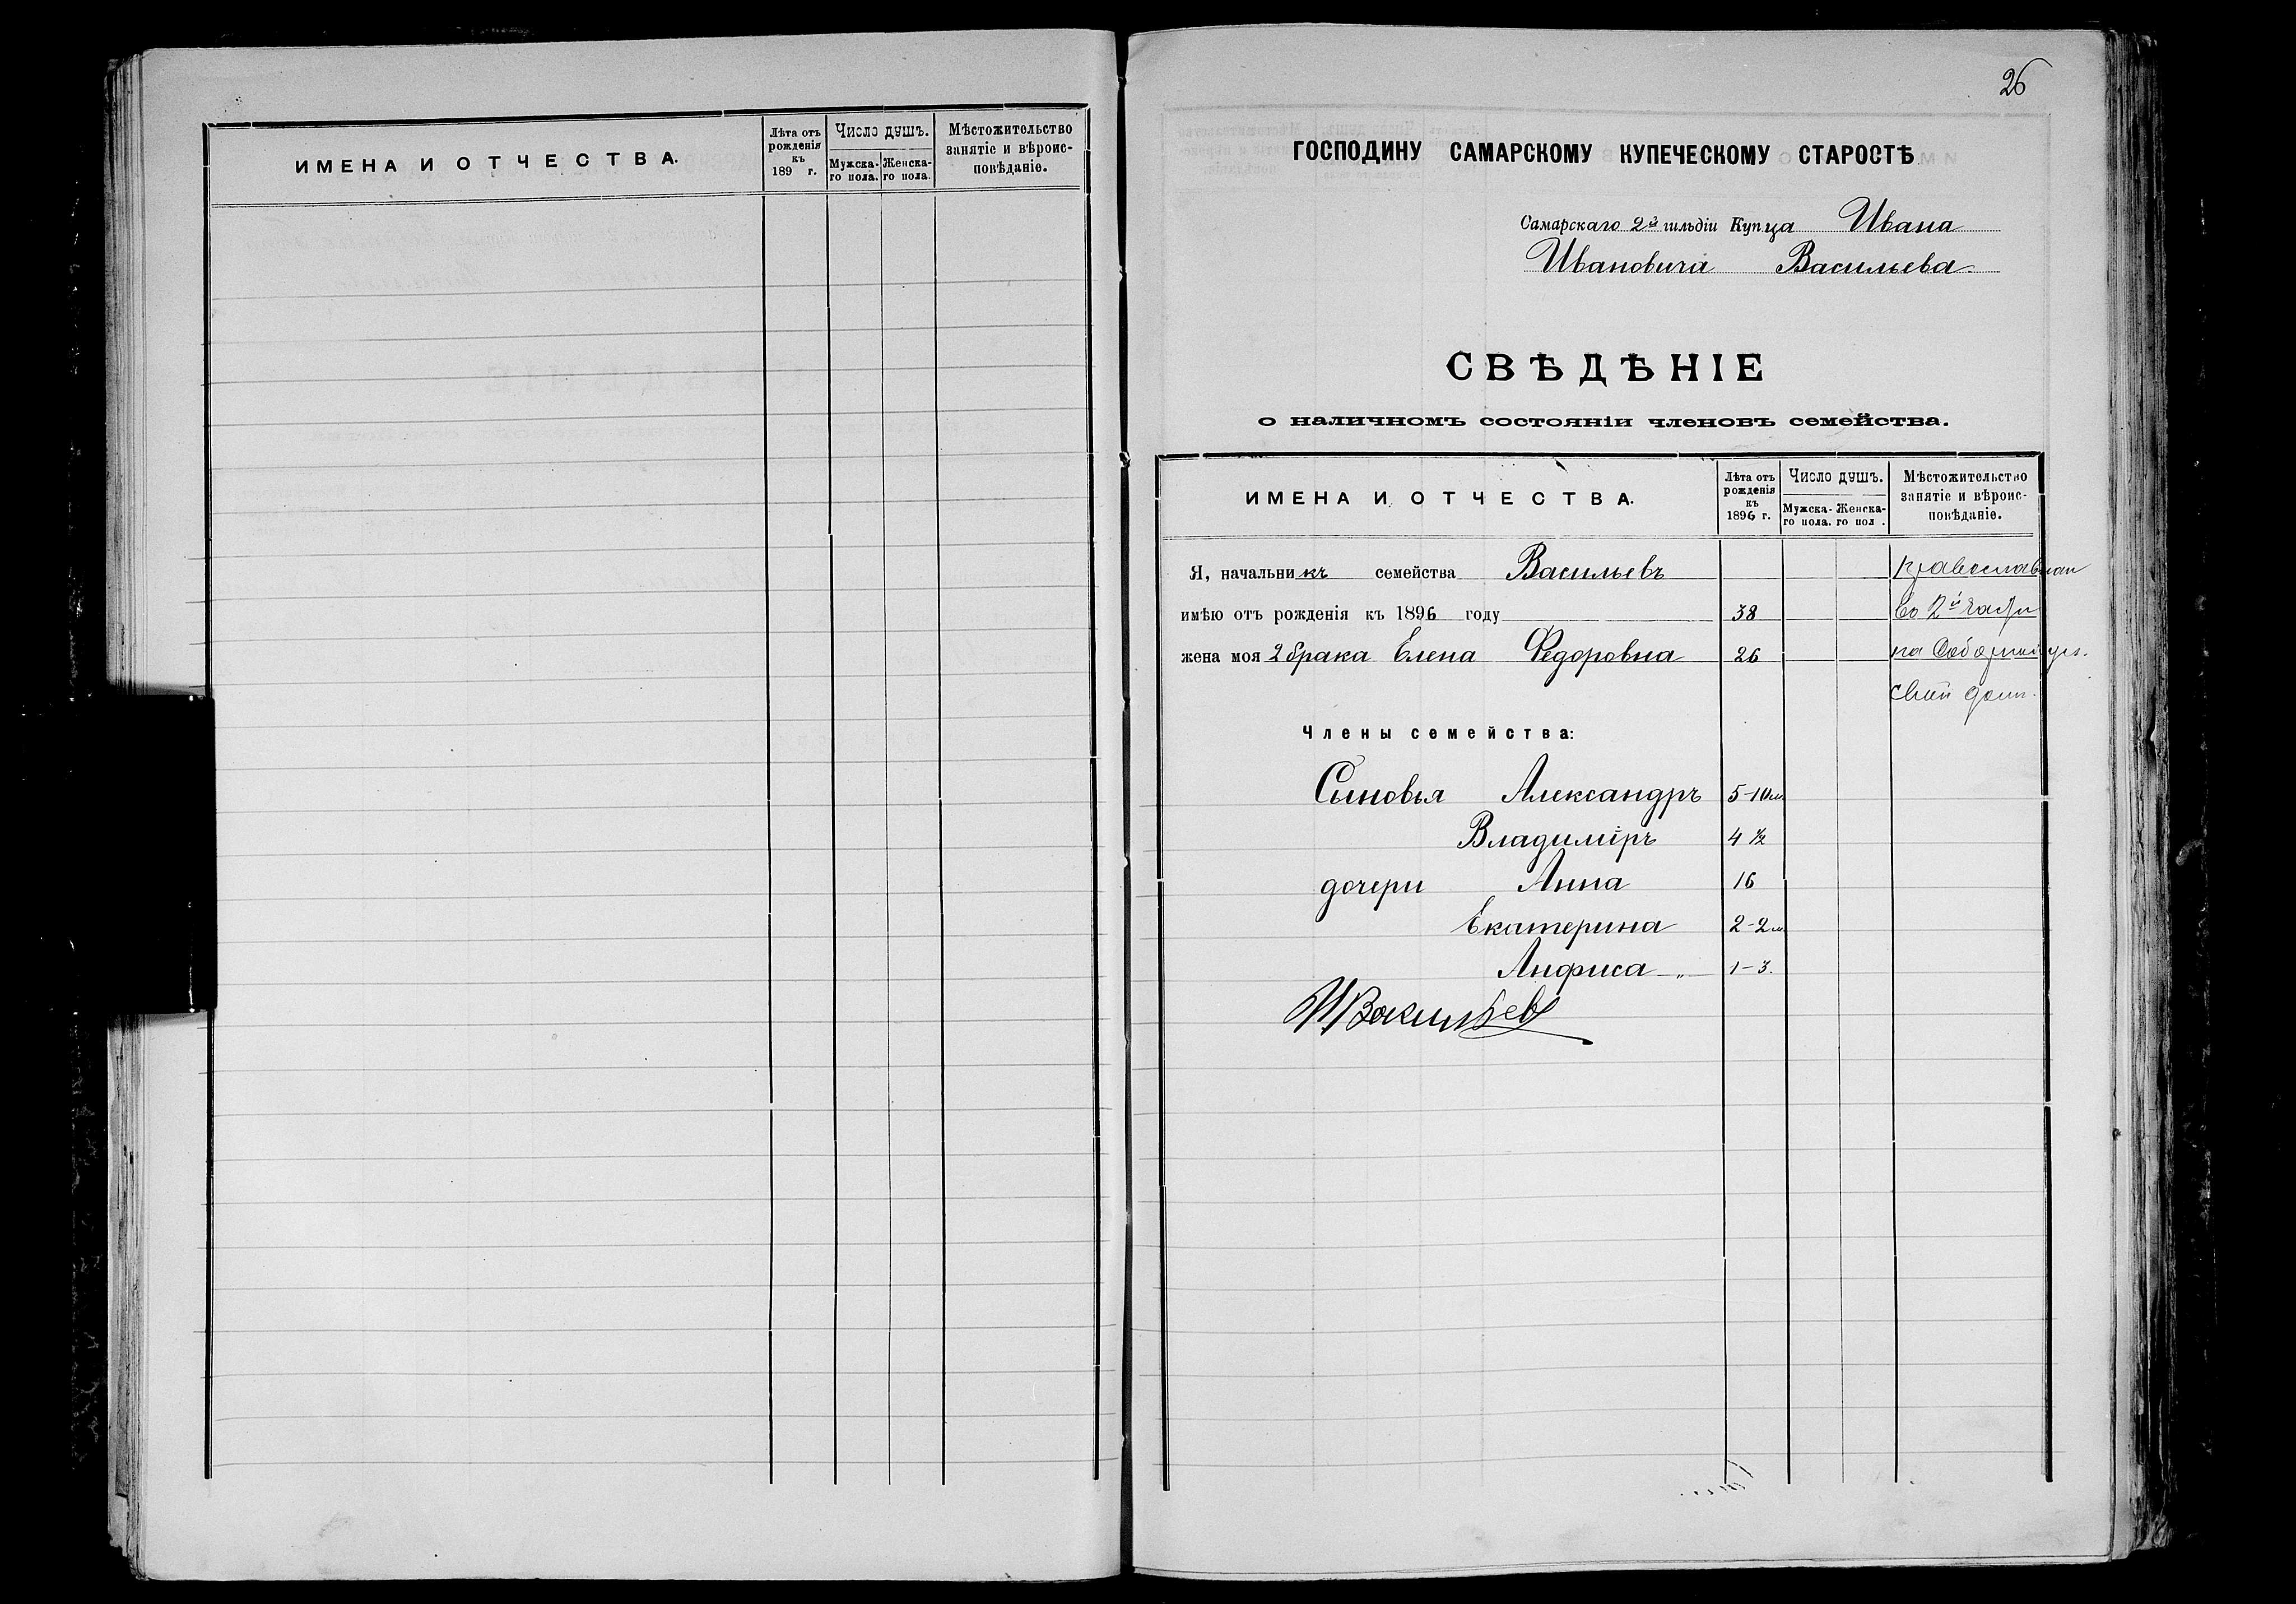 ИМЕНА И ОТЧЕСТВА.
Лѣта отъ рожденія къ 189 г.
Число душъ.
Мужска-го пола.
Женска-го пола.
Мѣстожительство занятіе и вѣроис-повѣданіе.
26
ГОСПОДИНУ САМАРСКОМУ КУПЕЧЕСКОМУ СТАРОСТѢ
Самарскаго 2й гильдіи Купца Ивана
Ивановича Васильева.
СВѢДѢНІЕ
о наличномъ состояніи членовъ семейства.
ИМЕНА И ОТЧЕСТВА.
Лѣта отъ рожденія къ 1896 г.
Число душъ.
Мужска-го пола.
Женска-го пол .
Мѣстожительство занятіе и вѣроис-повѣданіе.
Я, начальникъ семейства Васильевъ
имѣю отъ рожденія къ 1896 году 38 во 2й части
жена моя 2 брака Елена Федоровна 26 на
домъ.
Члены семейства:
Сыновья Александръ 5-10м.
Владиміръ 4 1/2
дочери Анна 16
Екатерина 2-2м
Анфиса " 1-3.
ИВасильевъ